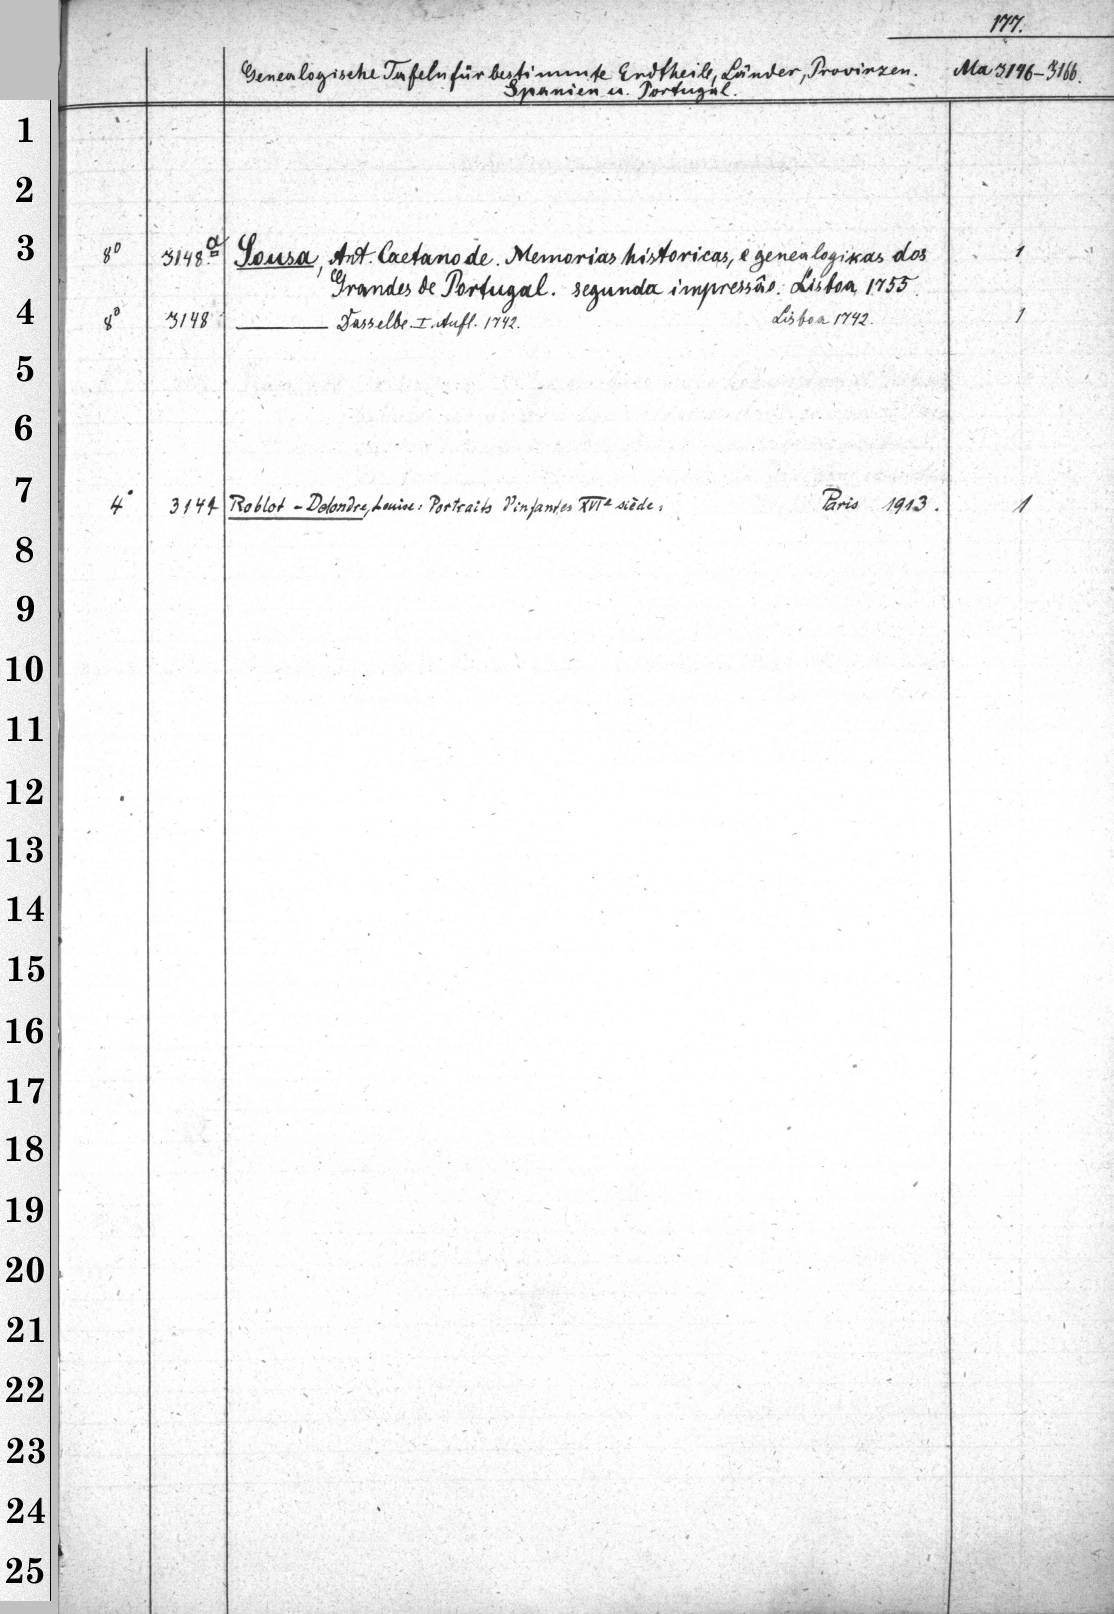 177.
Genealogische Tafeln für bestimmte Erdtheile, Länder, Provinzen. Ma 3146-3166.
Spanien u. Portugal.
1
2
3 8° 3148 a Sousa, Ant. Caetano de. Memorias historicas, e genealogikas dos 1
Grandes de Portugal. segunda impressão. Lisboa 1755.
4 8° 3148 Dasselbe. I. Aufl. 1742. Lisboa 1742. 1
5
6
7 4° Roblot-Delondre, Louise: Portraits d'infantes XVIe siècle. Paris 1913. 1
8
9
10
11
12
13
14
15
16
17
18
19
20
21
22
23
24
25